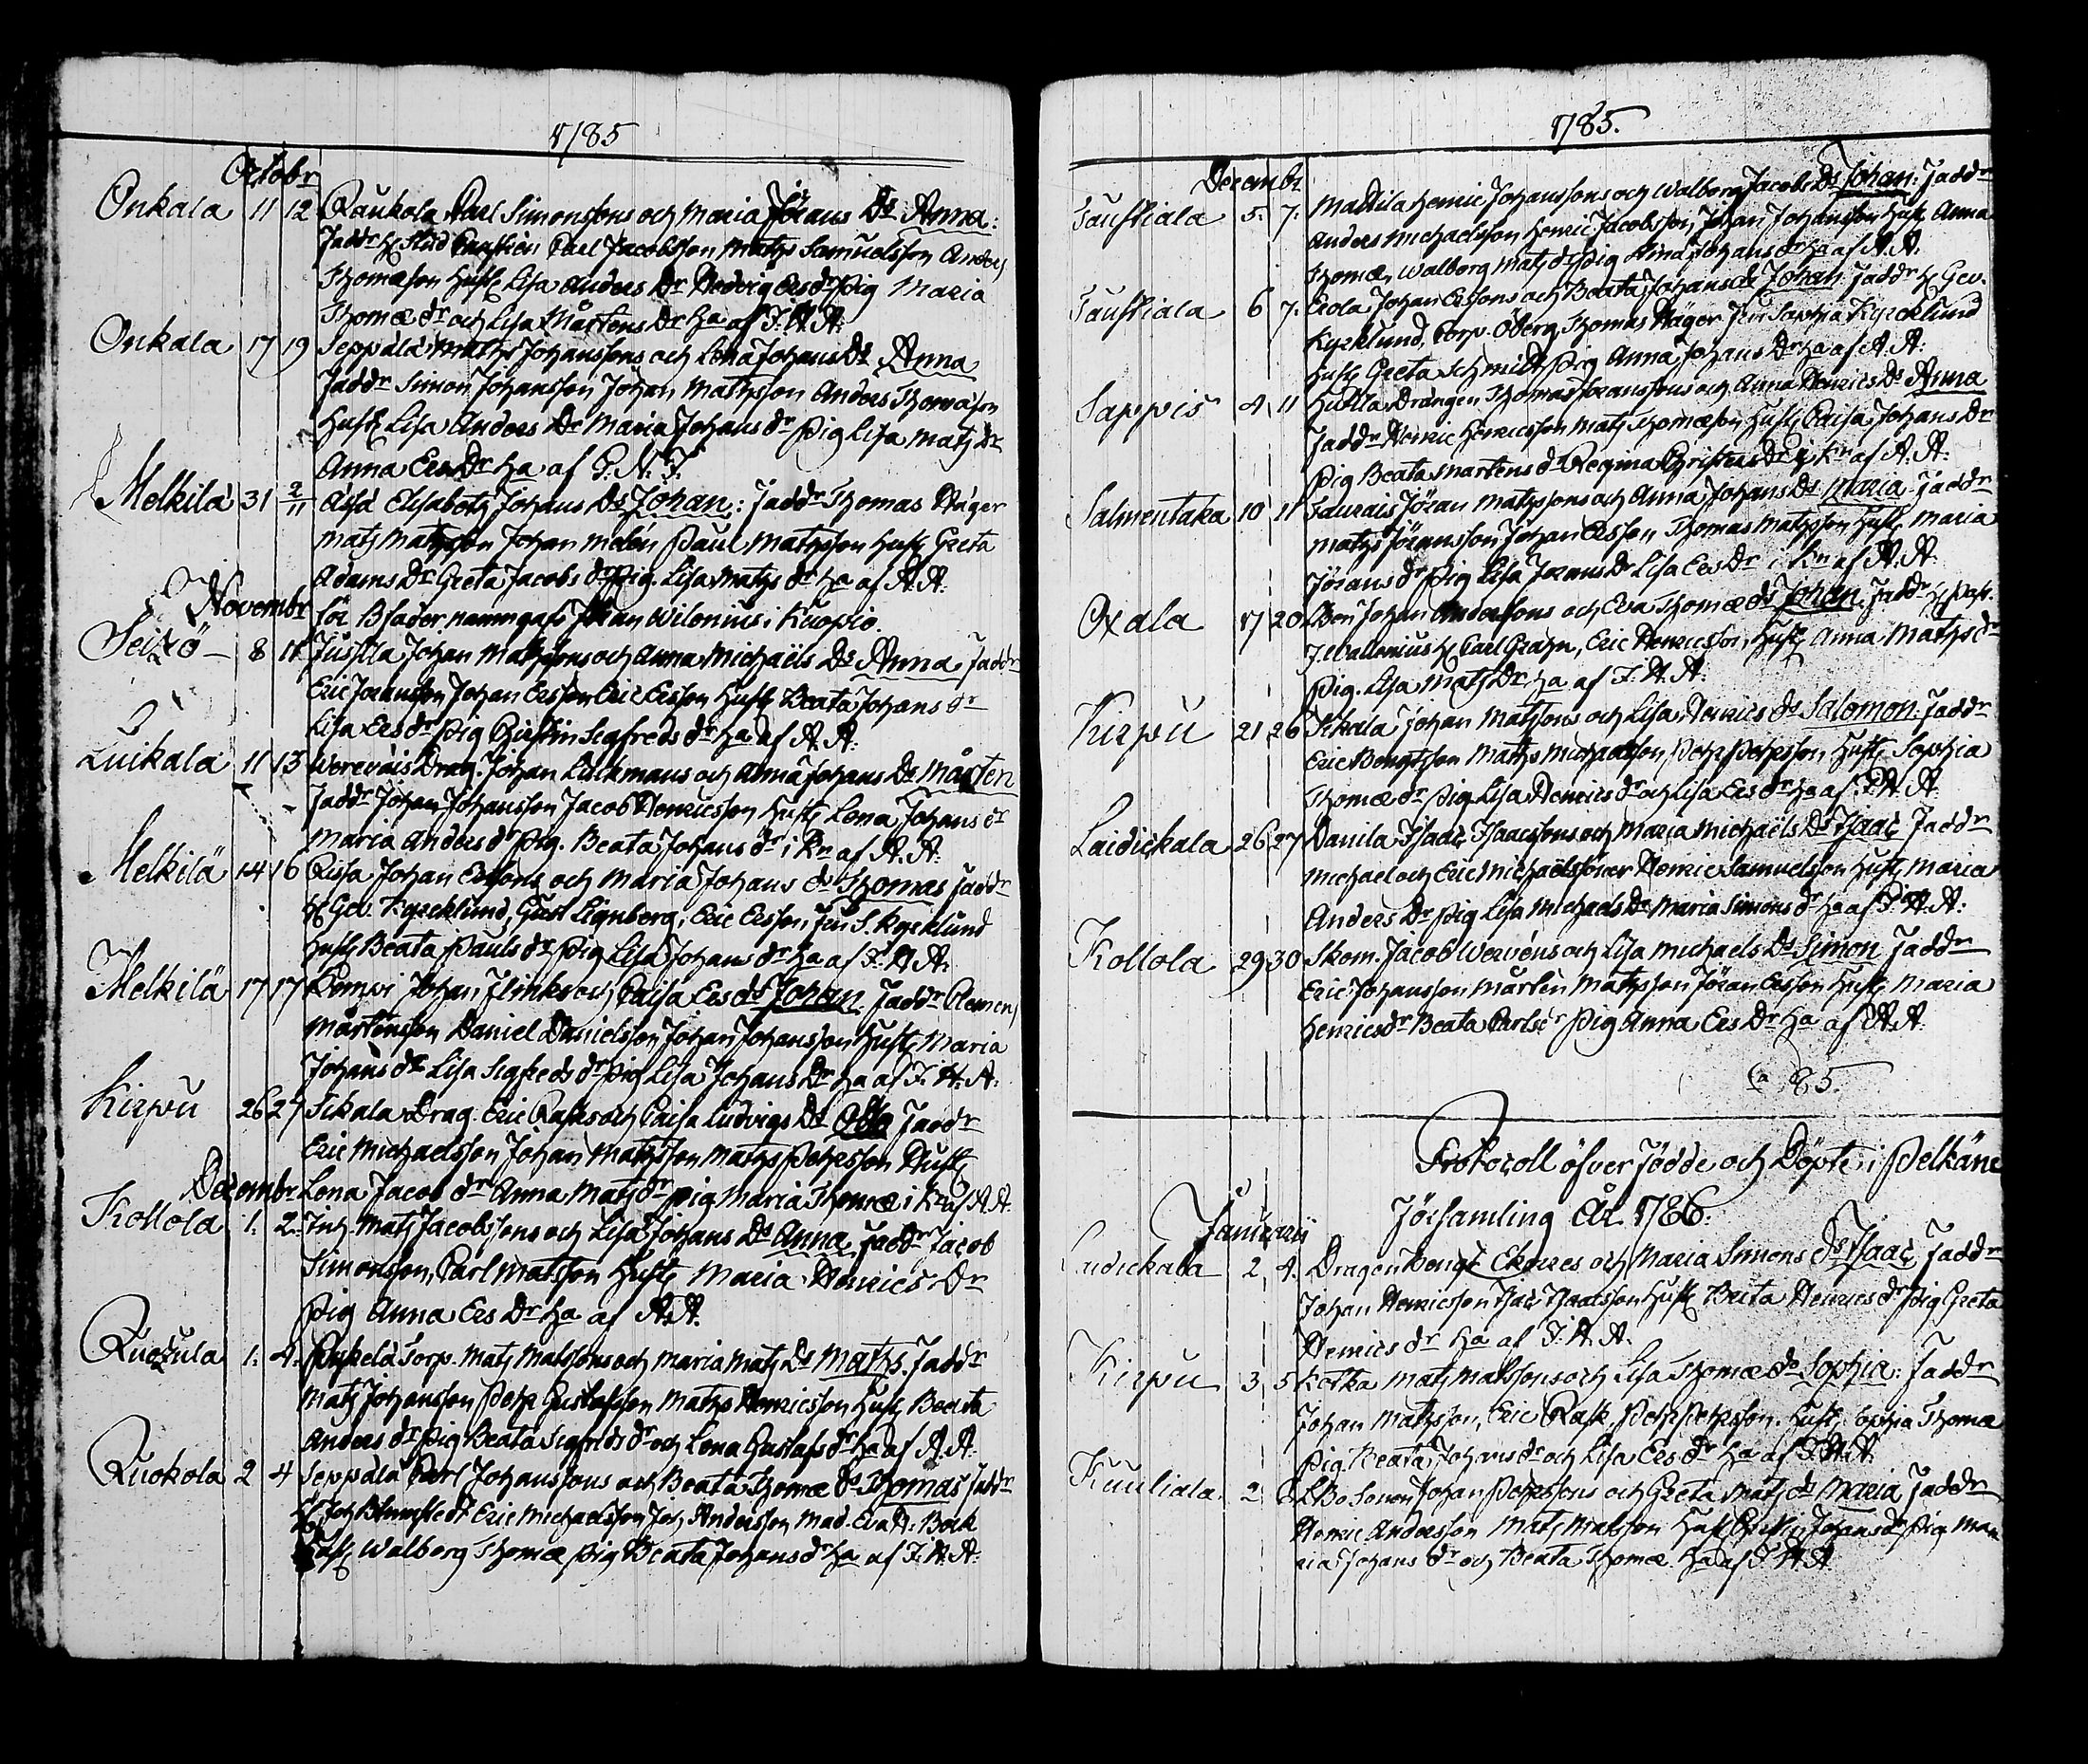 1785
Octobr
Onkala 11 12 Raukola Carl Simonssons och Maria Jörans Dr Anna:
Faddr H Stud Carl Jacobsson Mats Samuelsson Anders
Thomæson Hust Lisa Anders Dr Hedvig Ers dr Pig Maria
Thomæ dr och Lisa Mårtens Dr ha af F. A. A.
Onkala 17 19 Seppälä Mats Johanssons och Lena Johans Dr Anna
Faddr Simon Johansson Johan Mathsson Anders Thomæson
Hust Lisa Anders Dr Maria Johans dr Pig Lisa Mats Dr
Anna Ers Dr ha af G. N. F.
Melkilä 31 2/11 Elisabeth Johans Dr Johan: Faddr Thomas Häger
Mats Mathsson Johan Melén Paul Mathsson Hust Greta
Adams Dr Greta Jacobs dr Pig. Lisa Maths dr ha af A. A.
Novembr för Bfader namngafs Johan Wilenius i Kuopio.
Seitzö 8 11 Jussila Johan Mathssons och Anna Michaëls Dr Anna Faddr
Eric Joransson Johan Ersson Eric Ersson Hust Beata Johans dr
Lisa Ers dr Pig Christin Segfreds dr ha af A. A.
Luikala 11 13 Werevais Drag. Johan Lustmans och Anna Johans Dr Mårten
Faddr Johan Johansson Jacob Henricsson Hust Lena Johans dr
Maria Anders dr Pig. Beata Johans dr i Kn af A. A.
Melkilä 14 16 Rissa Johan Erssons och Maria Johans dr Thomas Faddr
H Gev. Kyrcklund, Gust Lignberg, Eric Ersson, Fru S. Kyrcklund
Hust Beata Pauls dr Pig Lisa Johans dr ha af F. A. A.
Melkilä 17 17 Pempi Johan Flinks och Caisa Ers dr Johan. Faddr Clemen
Mårtensson Daniel Danielsson Johan Johansson Hust Maria
Johans dr Lisa Segfreds dr Pig Lisa Johans Dr ha af F. A. A.
Kirpu 26 27 Sikala Drag. Eric Rasks och Caisa Ludvigs Dr Otto Faddr
Eric Michaelsson Johan Mathsson Maths Pehrsson Hust
Decembr Lena Jacob dr Anna Mats dr Pig Maria Thomæ i Kn af A. A.
Kollola 1. 2. Inh Mats Jacobssons och Lisa Johans Dr Anna Faddr Jacob
Simonsson, Carl Matsson Hust Maria Henrics Dr
Pig Anna Ers Dr ha af A. A.
Ruokula 1. 4. Torp. Mats Matssons och Maria Mats Dr Maths. Faddr
Mats Johansson Pehr Gustafsson Maths Henricsson Hust Beata
Anders dr Pig Beata Segfrids dr och Lena Gustafs dr ha af A. A.
Ruokola 2 4 Seppälä Carl Johanssons och Beata Thomæ dr Thomas Faddr
H Joh Blumstedt Eric Michaelsson Joh Andersson Mad. Eva H: Bock
Hust Walborg Thomæ Pig Beata Johans dr ha af F. A. A.
1785.
Decembr
Taustiala 5. 7. Mattila Henric Johanssons och Walborg Jacobs Dr Johan: Faddr
Anders Michaelsson Henric Jacobsson, Johan Johansson Hust Anna
Thomæ, Walborg Mats dr Pig Stina Johans dr ha af A. A.
Taustiala 6 7. Erola Johan Erssons och Beata Johans dr Johan Faddr H Gev.
Kyrcklund, Corp. Öberg Thomas Häger Fru Sophia Kyrcklund
Hust Greta Schmidt Pig Anna Johans Dr ha af A. A.
Sappis 4 11 Huttila Drängen Thomas Joranssons och Anna Henrics Dr Anna
Faddr Henric Henricsson Mats Thomæson Hust Caisa Johans Dr
Pig Beata Martens dr Regina Christers Dr i Kn af A. A.
Salmentaka 10 11 Taurais Jöran Mathssons och Anna Johans Dr Maria Faddr
Maths Jöransson Johan Ersson Thomas Mathsson Hust Maria
Jörans dr Pig Lisa Jorans Dr Lisa Ers Dr i Kn af A. A.
Oxala 17 20 Ben Johan Anderssons och Eva Thomæ dr Johan. Faddr H Past.
J. Wallenius H Carl Grahn, Eric Henricsson, Hust Anna Maths dr
Pig. Lisa Mats Dr ha af F. A. A.
Kirpu 21 26 Sikala Johan Matssons och Lisa Henrics dr Salomon. Faddr
Eric Bengtsson Maths Michaelsson, Pehr Pehrsson Hust Sophia
Thomæ dr Pig Lisa Henrics dr och Lisa Ers dr ha af F. A. A.
Laidickala 26 27 Danila Isaac Isaacssons och Maria Michaëls Dr Isaac Faddr
Michael och Eric Michaëlssöner Henric Samuelsson Hust Maria
Anders Dr Pig Lisa Michaels Dr Maria Simons dr ha af F. A. A.
Kollola 29 30 Skom. Jacob Wervéns och Lisa Michaels Dr Simon Faddr
Eric Johansson Mårten Mathsson Jöran Ersson Hust Maria
Henrics dr Beata Carls dr Pig Anna Ers Dr ha af A. A.
85.
Protocoll öfver Födde och Döpte i Pelkäne
Församling År 1786.
Januarii
Laidickala 2 4. Dragen Bengt Ekorres och Maria Simons dr Isaac Faddr
Johan Henricsson Isac Isaacsson Hust Brita Henrics dr Pig Greta
Henrics dr ha af F. A. A.
Kirpu 3 5 Kotka Mats Matssons och Lisa Thomæ dr Sophia: Faddr
Johan Mathsson, Eric Rask, Pehr Pehrsson. Hust. Sophia Thomæ
Pig. Beata Johans dr och Lisa Ers dr ha af F. A. A.
Kuuliala 2 6 Sonen Johan Pehrssons och Greta Mats dr Maria Faddr
Henric Andersson Mats Matsson Hust Johans dr Pig Ma
ria Johans dr och Beata Thomæ ha af F. A. A.